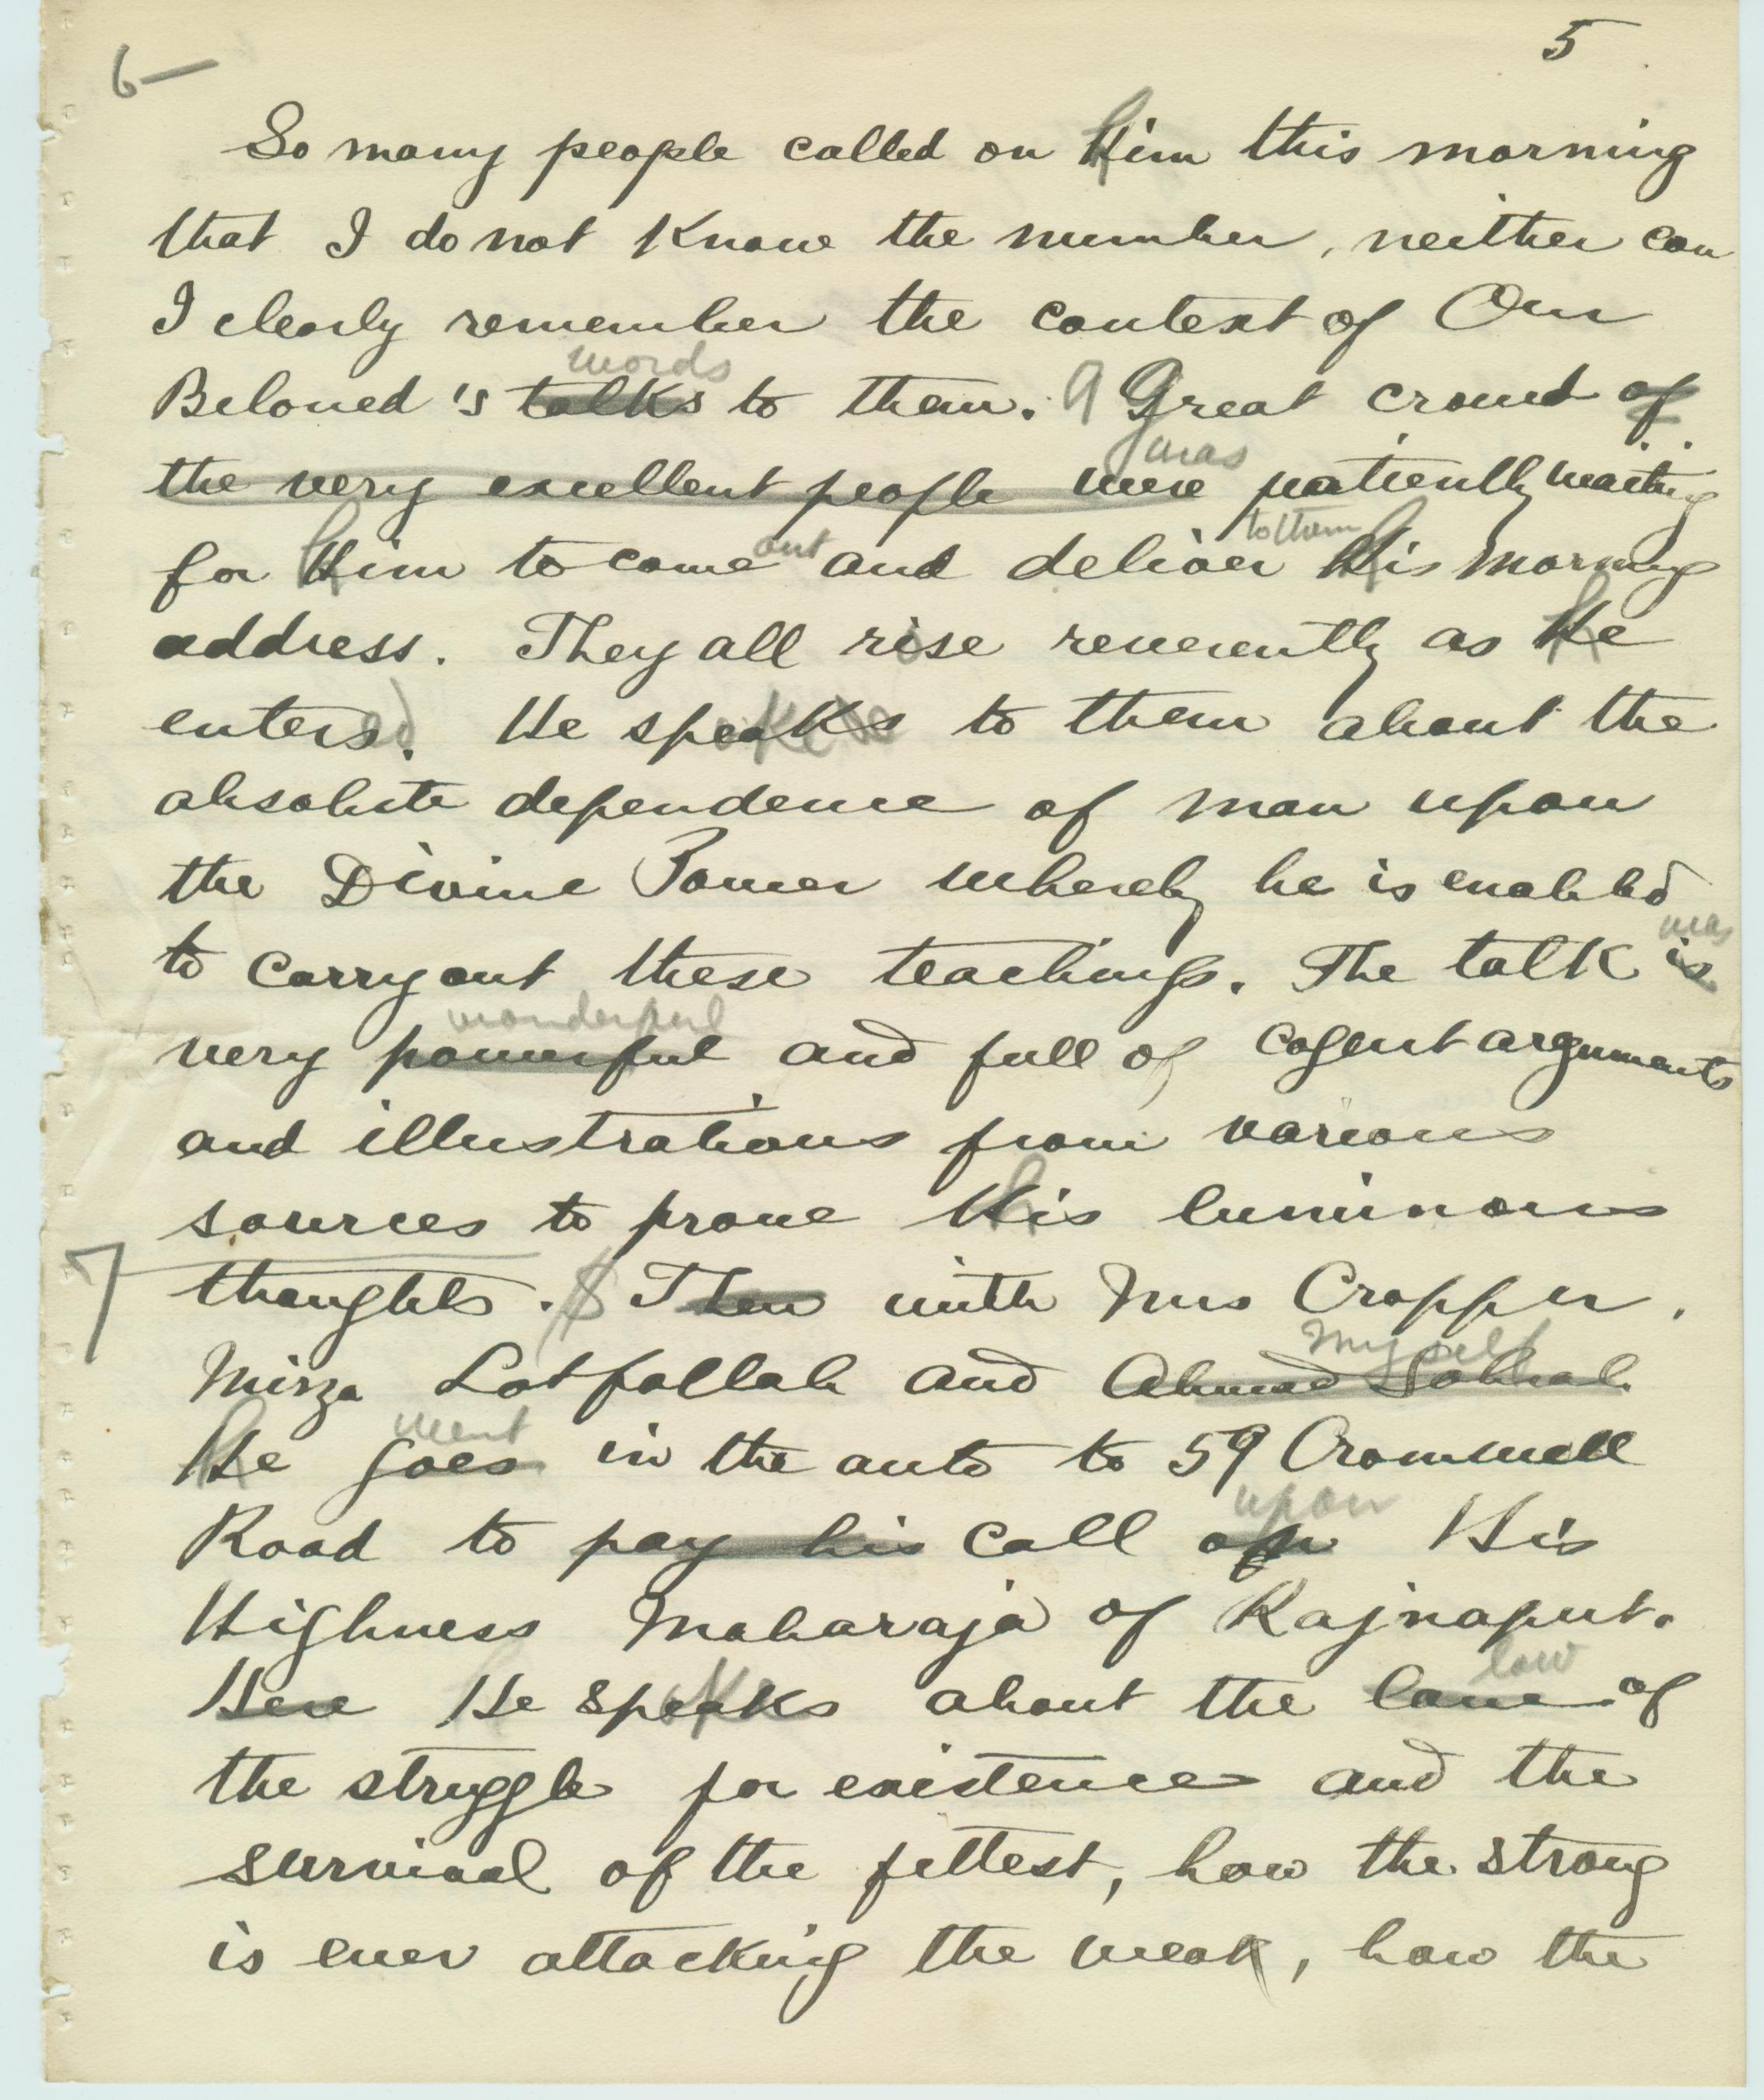 5
6—
So many people called on Him this morning
that I do not know the number, neither can
I clearly remember the context of Our
words
Beloved's talks to them. A Great crowd of
was
the very excellent people were patiently waiting
out to them
for Him to come and deliver His morning
address. They all rise reverently as He
enters. He speaks to them about the
absolute dependence of man upon
the Divine Power whereby he is enabled
was
to carry out these teachings. The talk is
wonderful
very powerful and full of cogent arguments
and illustrations from various
sources to prove His luminous
7
thoughts. Then with Mrs Cropper,
myself
Mirza Lotfallah and Ahmad Sohrab
went
He goes in the auto to 59 Cromwell
upon
Road to pay his call on His
Highness Maharaja of Rajnaput.
law
Here He speaks about the law of
the struggle for existence and the
survival of the fittest, how the strong
is ever attacking the weak, how the